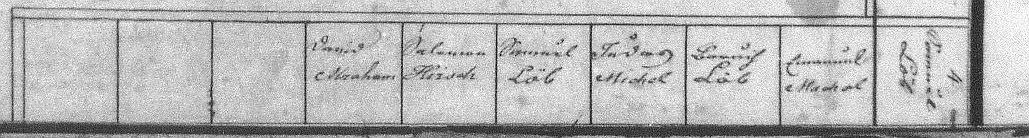 David
Abraham
Salomon
Hirsch
Samuel
Löb
Judas
Michel
Baruch
Löb
Emanuel
Machol
Samuel
Löb